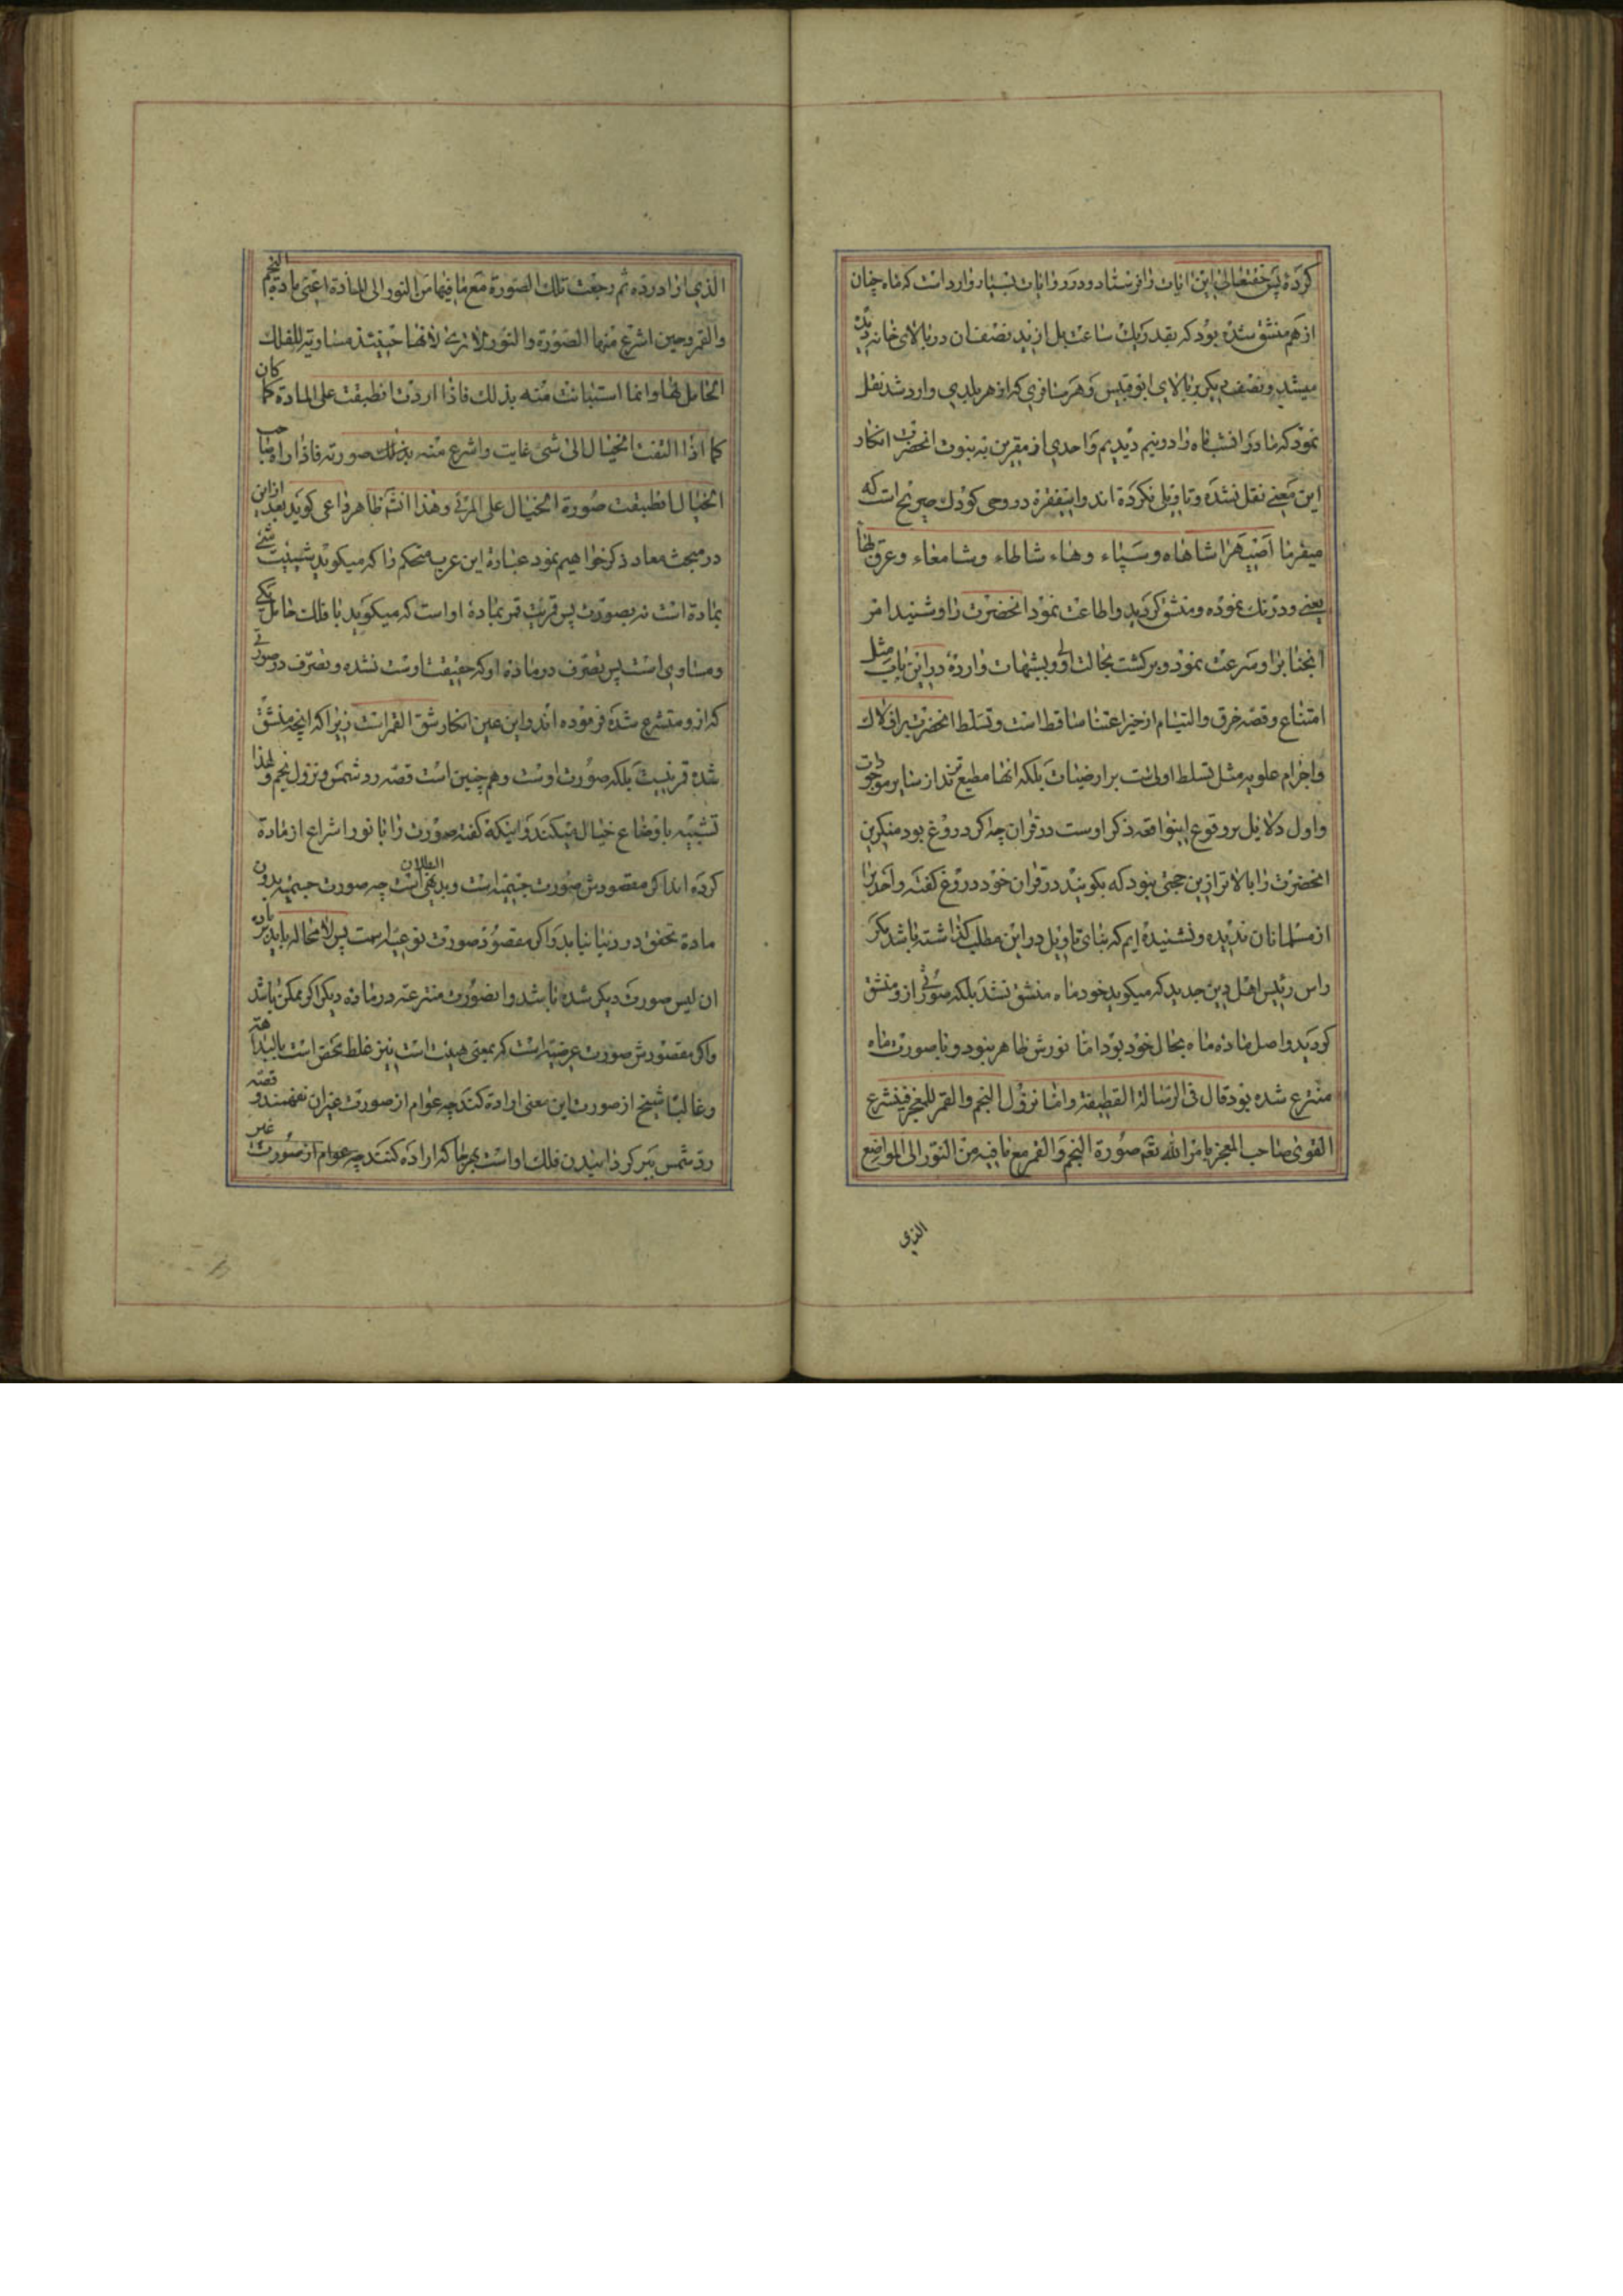 کرده پس حقتعالی این ایات را فرستاد و در روایات بسیار وارد است که ماه چنان
از هم منشق شده بود که بقدر یک ساعت بل ازید نصف ان در بالای خانه
میشد و نصف دیگر بر بالای ابوقبیس و هر مسافری که از هر بلدی وارد شد نقل
نمود که ما در افشب ماه را دو نیم دیدیم و احدی از مقرین به نبوت انحضرت انکار
این معنی نقل نشده و تاویلی نکرده اند و اینفقره در وحی کودک صریح است که
میفرماید شاهاه و سپاء وهناء شاطاء وشامغاء وعرق
یعنی و درنک نموده و منشق گردید و اطاعت نمود انحضرت را و شنید امر
انجناب را و سرعت نمود و برکشت بحالت اولی و شبهات وارده در این باب مثل
امتناع و قصه خرق و التیام از حیز اعتنا ساقط است و تسلط انحضرت بر افلاک
واجرام علویه مثل تسلط اولی است بر ارضیات بلکه انها مطیع ترند از سایر موجودات
و اول دلایل بر وقوع اینواقعه ذکر اوست در قران چه اگر دروغ بود منکرین
انحضرت را بالاتر از این حجتی نبود که بگویند در قران خود دروغ گفته و احدی را
از مسلمانان ندیده و نشنیده ایم که بنای تاویل در این مطلب گذاشته باشد مگر
راس رئیس اهل دین جدید که میکوید خود ماه منشق نشد بلکه صورتی از و منشق
کردید و اصل ماده ماه بحال خود بود اما نورش ظاهر نبود و با صورت ماه
منتزع شده بود قال فی الرسالة القطیفیة واما نزول النجم والقمر للمعجز فینتزع
القوی صاحب المعجز بامر الله تع صورة النجم والقمر مع ما فیه من النور الی المواضع
الذی
الذی اراد رده ثم رجعت تلک الصورة مع ما فیها من النور الی المادة اعنی مادة النجم
والقمر وحین انتزع منها الصورة والنور لا تری لانها حینئذ مساویة للفلک
الحامل لها وانما استبانت منه بذلک فاذا اردت انطبقت علی المادة کما کان
کما اذا التفت الخیال الی شیء غایب وانتزع منه بذلک صورته فاذا راه صاحب
الخیال انطبقت صورة الخیال علی المرئی وهذا انشاء الله ظاهر داعی کوید بعد از این
در مبحث معاد ذکر خواهیم نمود عبارة این عرب متحکم را که میکوید شیئیت شیء
بماده است نه بصورت پس قمریت قمر بمادۀ او است که میکوید با فلک حامل یکی
و مساوی است پس تصرف در ماده او که حقیقت اوست نشده و تصرف در صورتی
که از و منتزع شده فرموده اند و این عین انکار شق القمر است زیرا که انچه منشق
شده قمر نیست بلکه صورت اوست و هم چنین است قصه رد شمس و نزول نجم و لهذا
تشبیه باوضاع خیال میکند و اینکه گفته صورت را با نور انتزاع از ماده
کرده اند اگر مقصودش صورت جسمیه است و بدیهی البطلان است چه صورت جسمیه بدون
مادة تحقق در دنیا نیابد و اگر مقصود صورت نوعیه است پس لا محاله باید ماده
ان لبس صورت دیگر شده باشد و انصورت منتزعه در ماده دیگر اگر ممکن باشد
و اگر مقصودش صورت عرضیه است که بمعنی هیئت است نیز غلط محض است بالبداهة
و غالبا شیخ از صورت این معنی اراده کند چه عوام از صورت غیر ان نفهمند و قصه
رد شمس نیز کردانیدن فلک او است بهر جا که اراده کنند چه عوام از صورت غیر